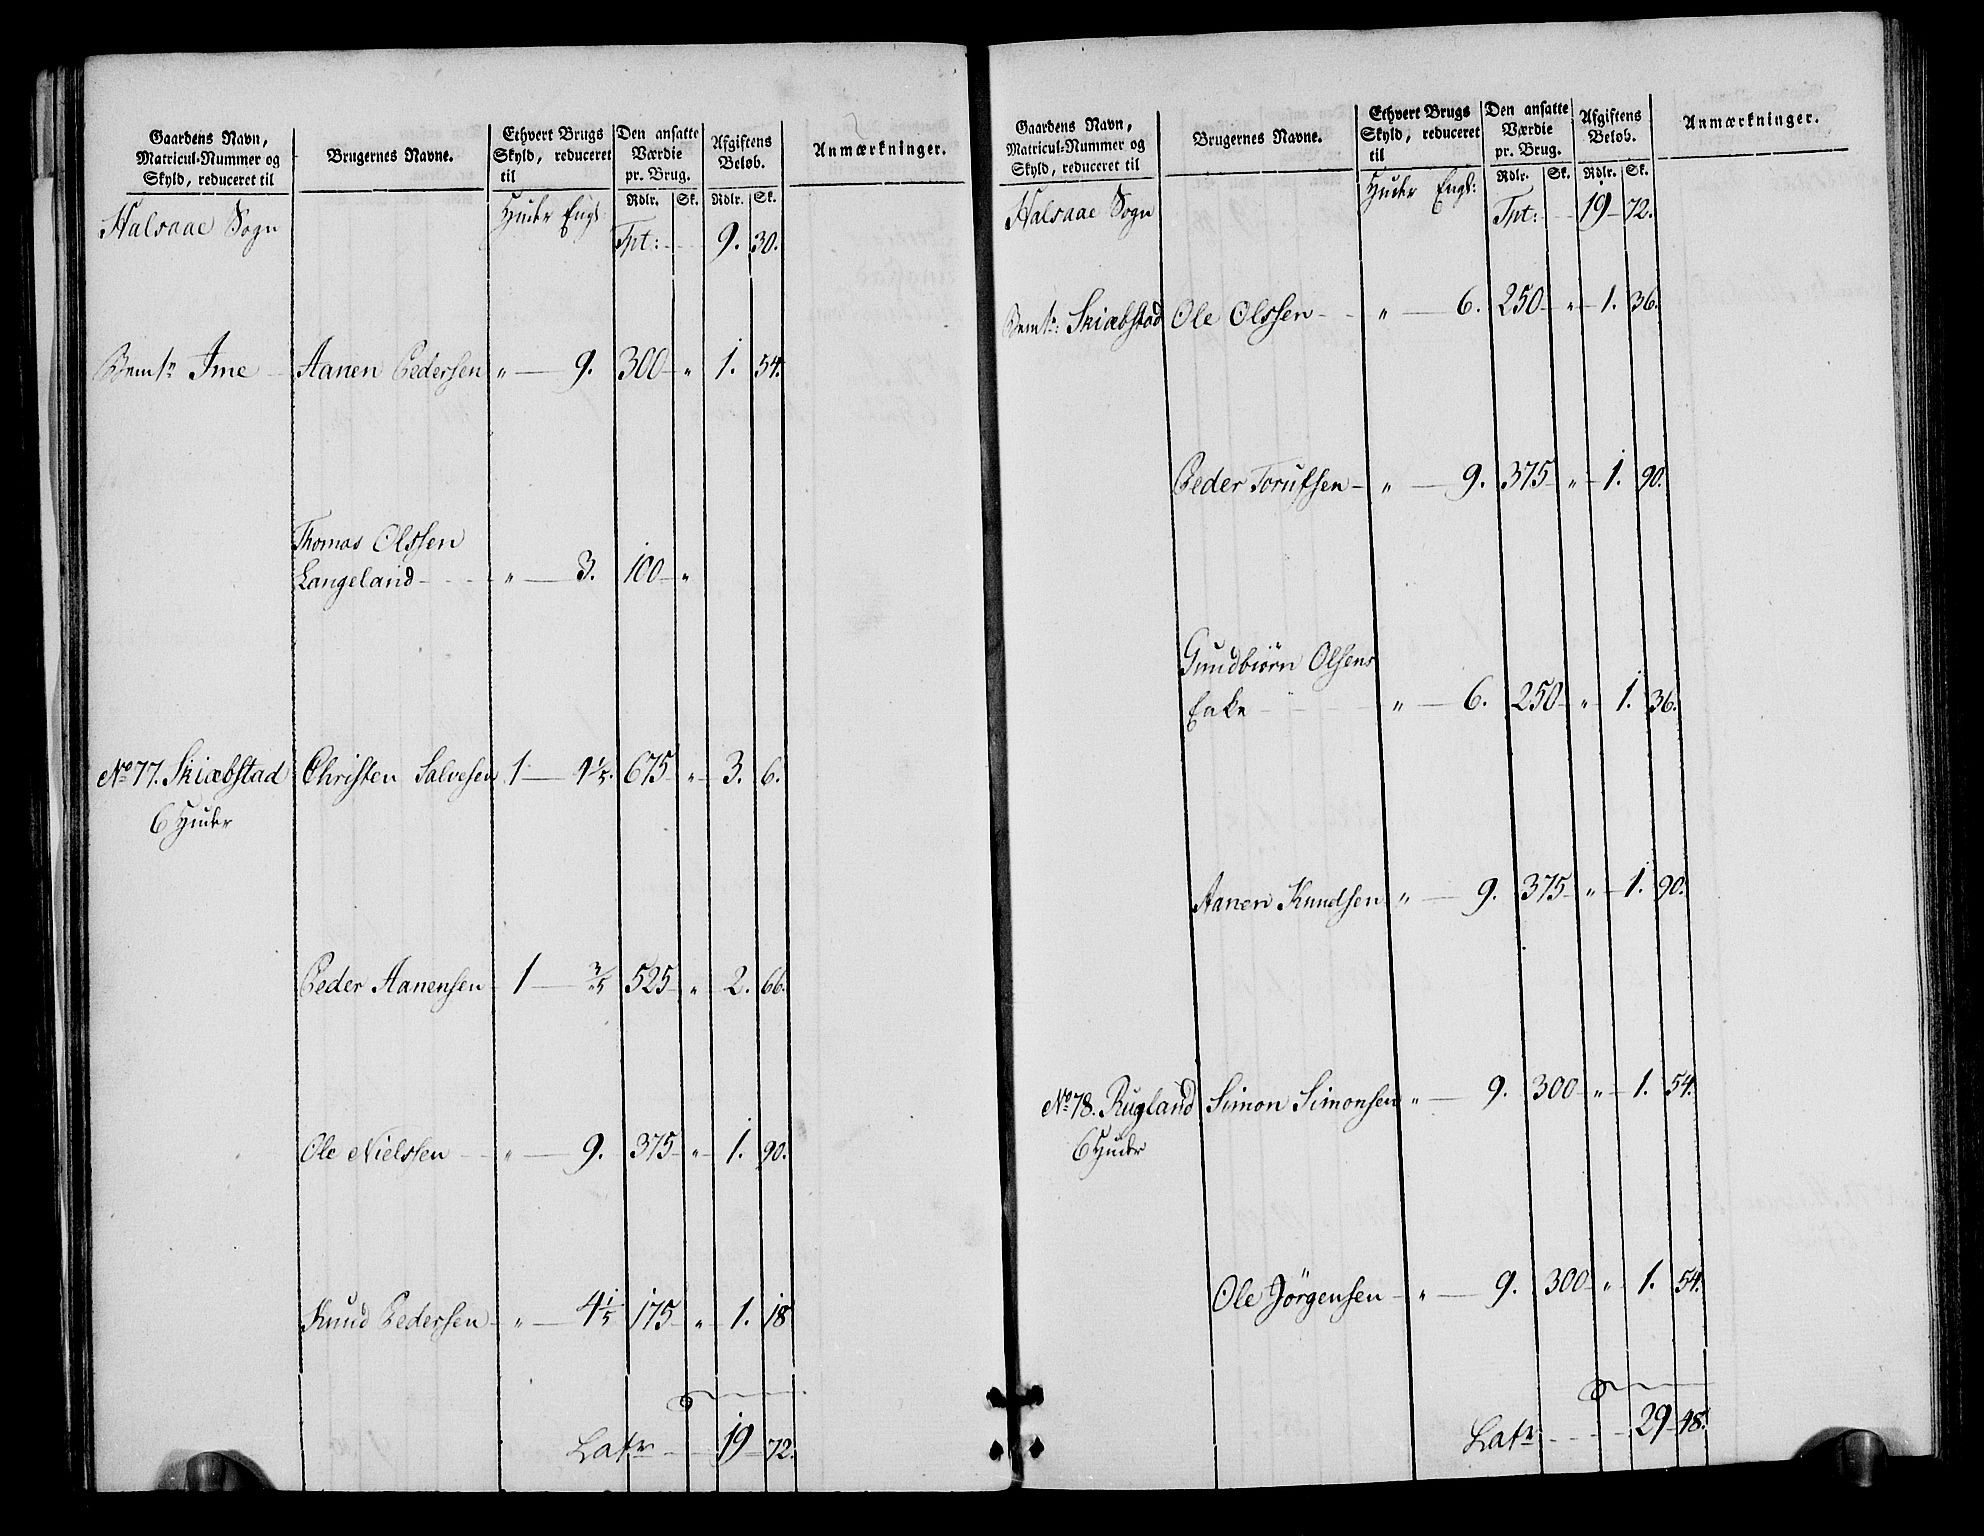 Gaardens Navn, Matricul-Nummer og Skyld, reduceret til | Brugernes Navne. | Ethvert Brugs Skyld, reduceret til | Den ansatte Værdie pr. Brug. | Afgiftens Beløb. | Anmærkninger.
Rdlr. Sk. Rdlr. Sk.
Halsaae Sogn Huder Engl: Tpt: 9. 30.
Bemte Ime Aanen Pedersen „ 9. 300 „ 1. 54.
Thomas Olssen
Langeland „ 3. 100 „
No 77. Skiæbstad Christen Salvesen 1 4 1/5. 675 „ 3. 6.
6 Huder
Peder Aanensen 1 3/5 525 „ 2. 66.
Ole Nielssen „ 9. 375 „ 1. 90.
Knud Pedersen „ 4 1/5 175 „ 1. 18
Latr 19 72.
Gaardens Navn, Matricul-Nummer og Skyld, reduceret til | Brugernes Navne. | Ethvert Brugs Skyld, reduceret til | Den ansatte Værdie pr. Brug. | Afgiftens Beløb. | Anmærkninger.
Rdlr. Sk. Rdlr. Sk.
Halsaae Sogn Huder Engl: Tpt: 19 72.
Bemte: Skiæbstad Ole Olssen „ 6. 250 „ 1. 36.
Peder Torufsen „ 9. 375 „ 1. 90.
Gundbiørn Olsens
Enke „ 6. 250 „ 1. 36.
Aanen Knudsen „ 9. 375 „ 1. 90.
No 78. Rugland Simon Simonsen „ 9. 300 „ 1. 54.
6 Huder
Ole Jörgensen „ 9. 300 „ 1. 54.
Latr: 29 48.